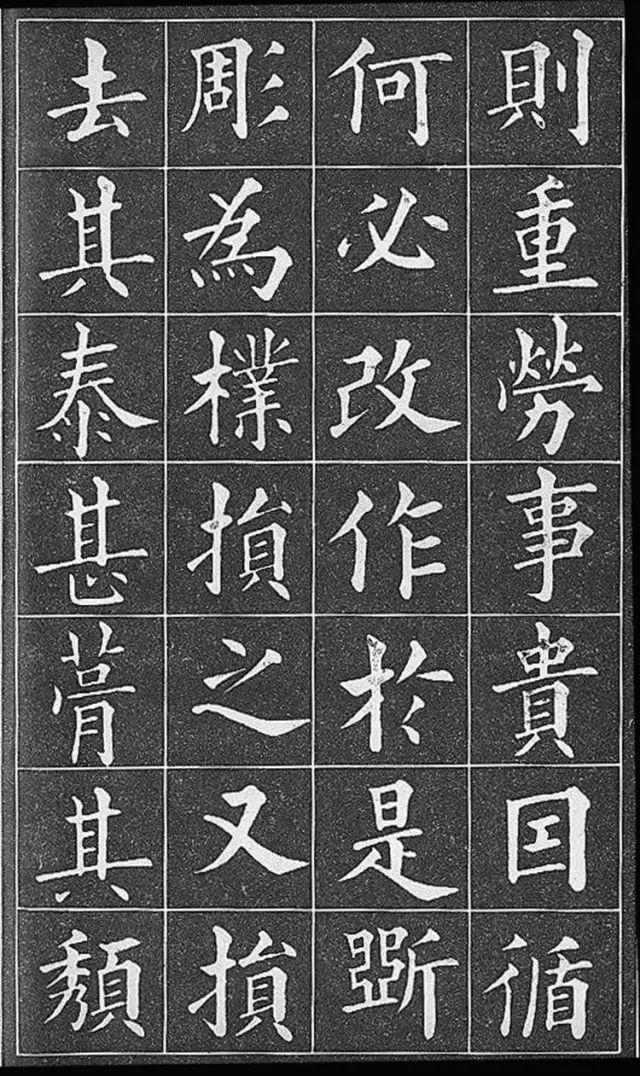 則重勞事貴因循
何必改作於是斲
彫為樸損之又損
去其泰甚葺其頽